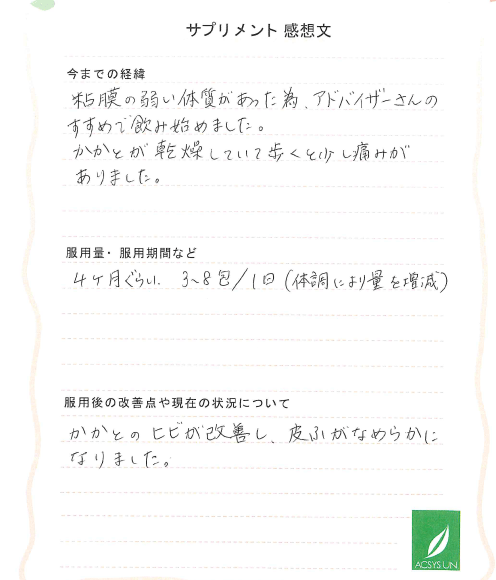 サプリメント 感想文
今までの経緯
粘膜の弱い体質があった為、アドバイザーさんの
すすめで飲み始めました。
かかとが乾燥していて歩くと少し痛みが
ありました。
服用量・服用期間など
4ヶ月ぐらい 3~8包/1日(体調により量を増減)
服用後の改善点や現在の状況について
かかとのヒビが改善し、皮ふがなめらかに
なりました。
ACSYS UN